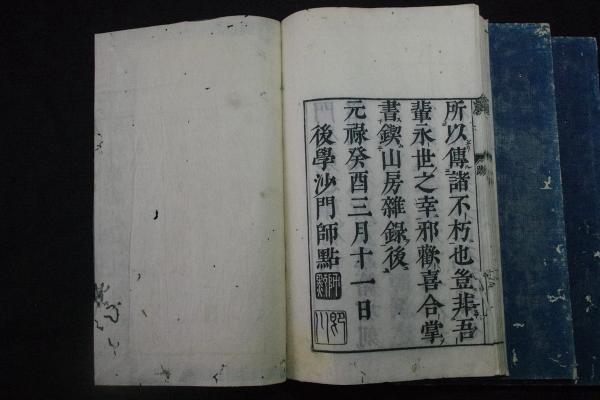 所以傳諸不朽也豈非吾
輩永世之幸邪歡喜合掌
書鍥山房雜錄後
元祿癸酉三月十一日
後學沙門師點